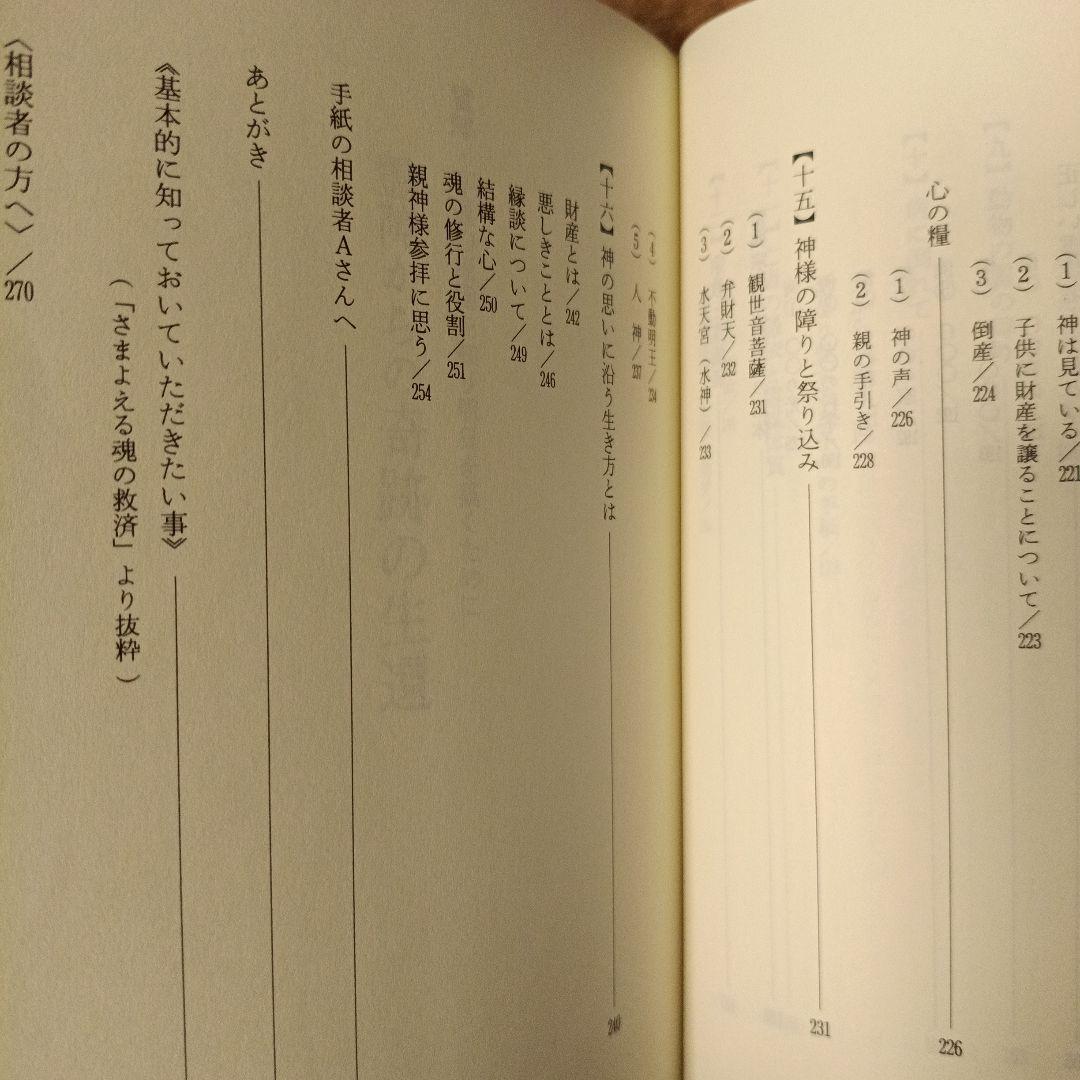 (1) 神は見ている/221
(2) 子供に財産を譲ることについて/223
(3) 倒産/224
心の糧 226
(1) 神の声/226
(2) 親の手引き/228
【十五】神様の障りと祭り込み 231
(1) 観世音菩薩/231
(2) 弁財天/232
(3) 水天宮(水神)/233
(4) 不動明王/234
(5) 人神/237
【十六】神の思いに沿う生き方とは 240
財産とは/242
悪しきこととは/246
縁談について/249
結構な心/250
魂の修行と役割/251
親神様参拝に思う/254
手紙の相談者Aさんへ
あとがき
《基本的に知っておいていただきたい事》
(「さまよえる魂の救済」より抜粋)
〈相談者の方へ〉/270